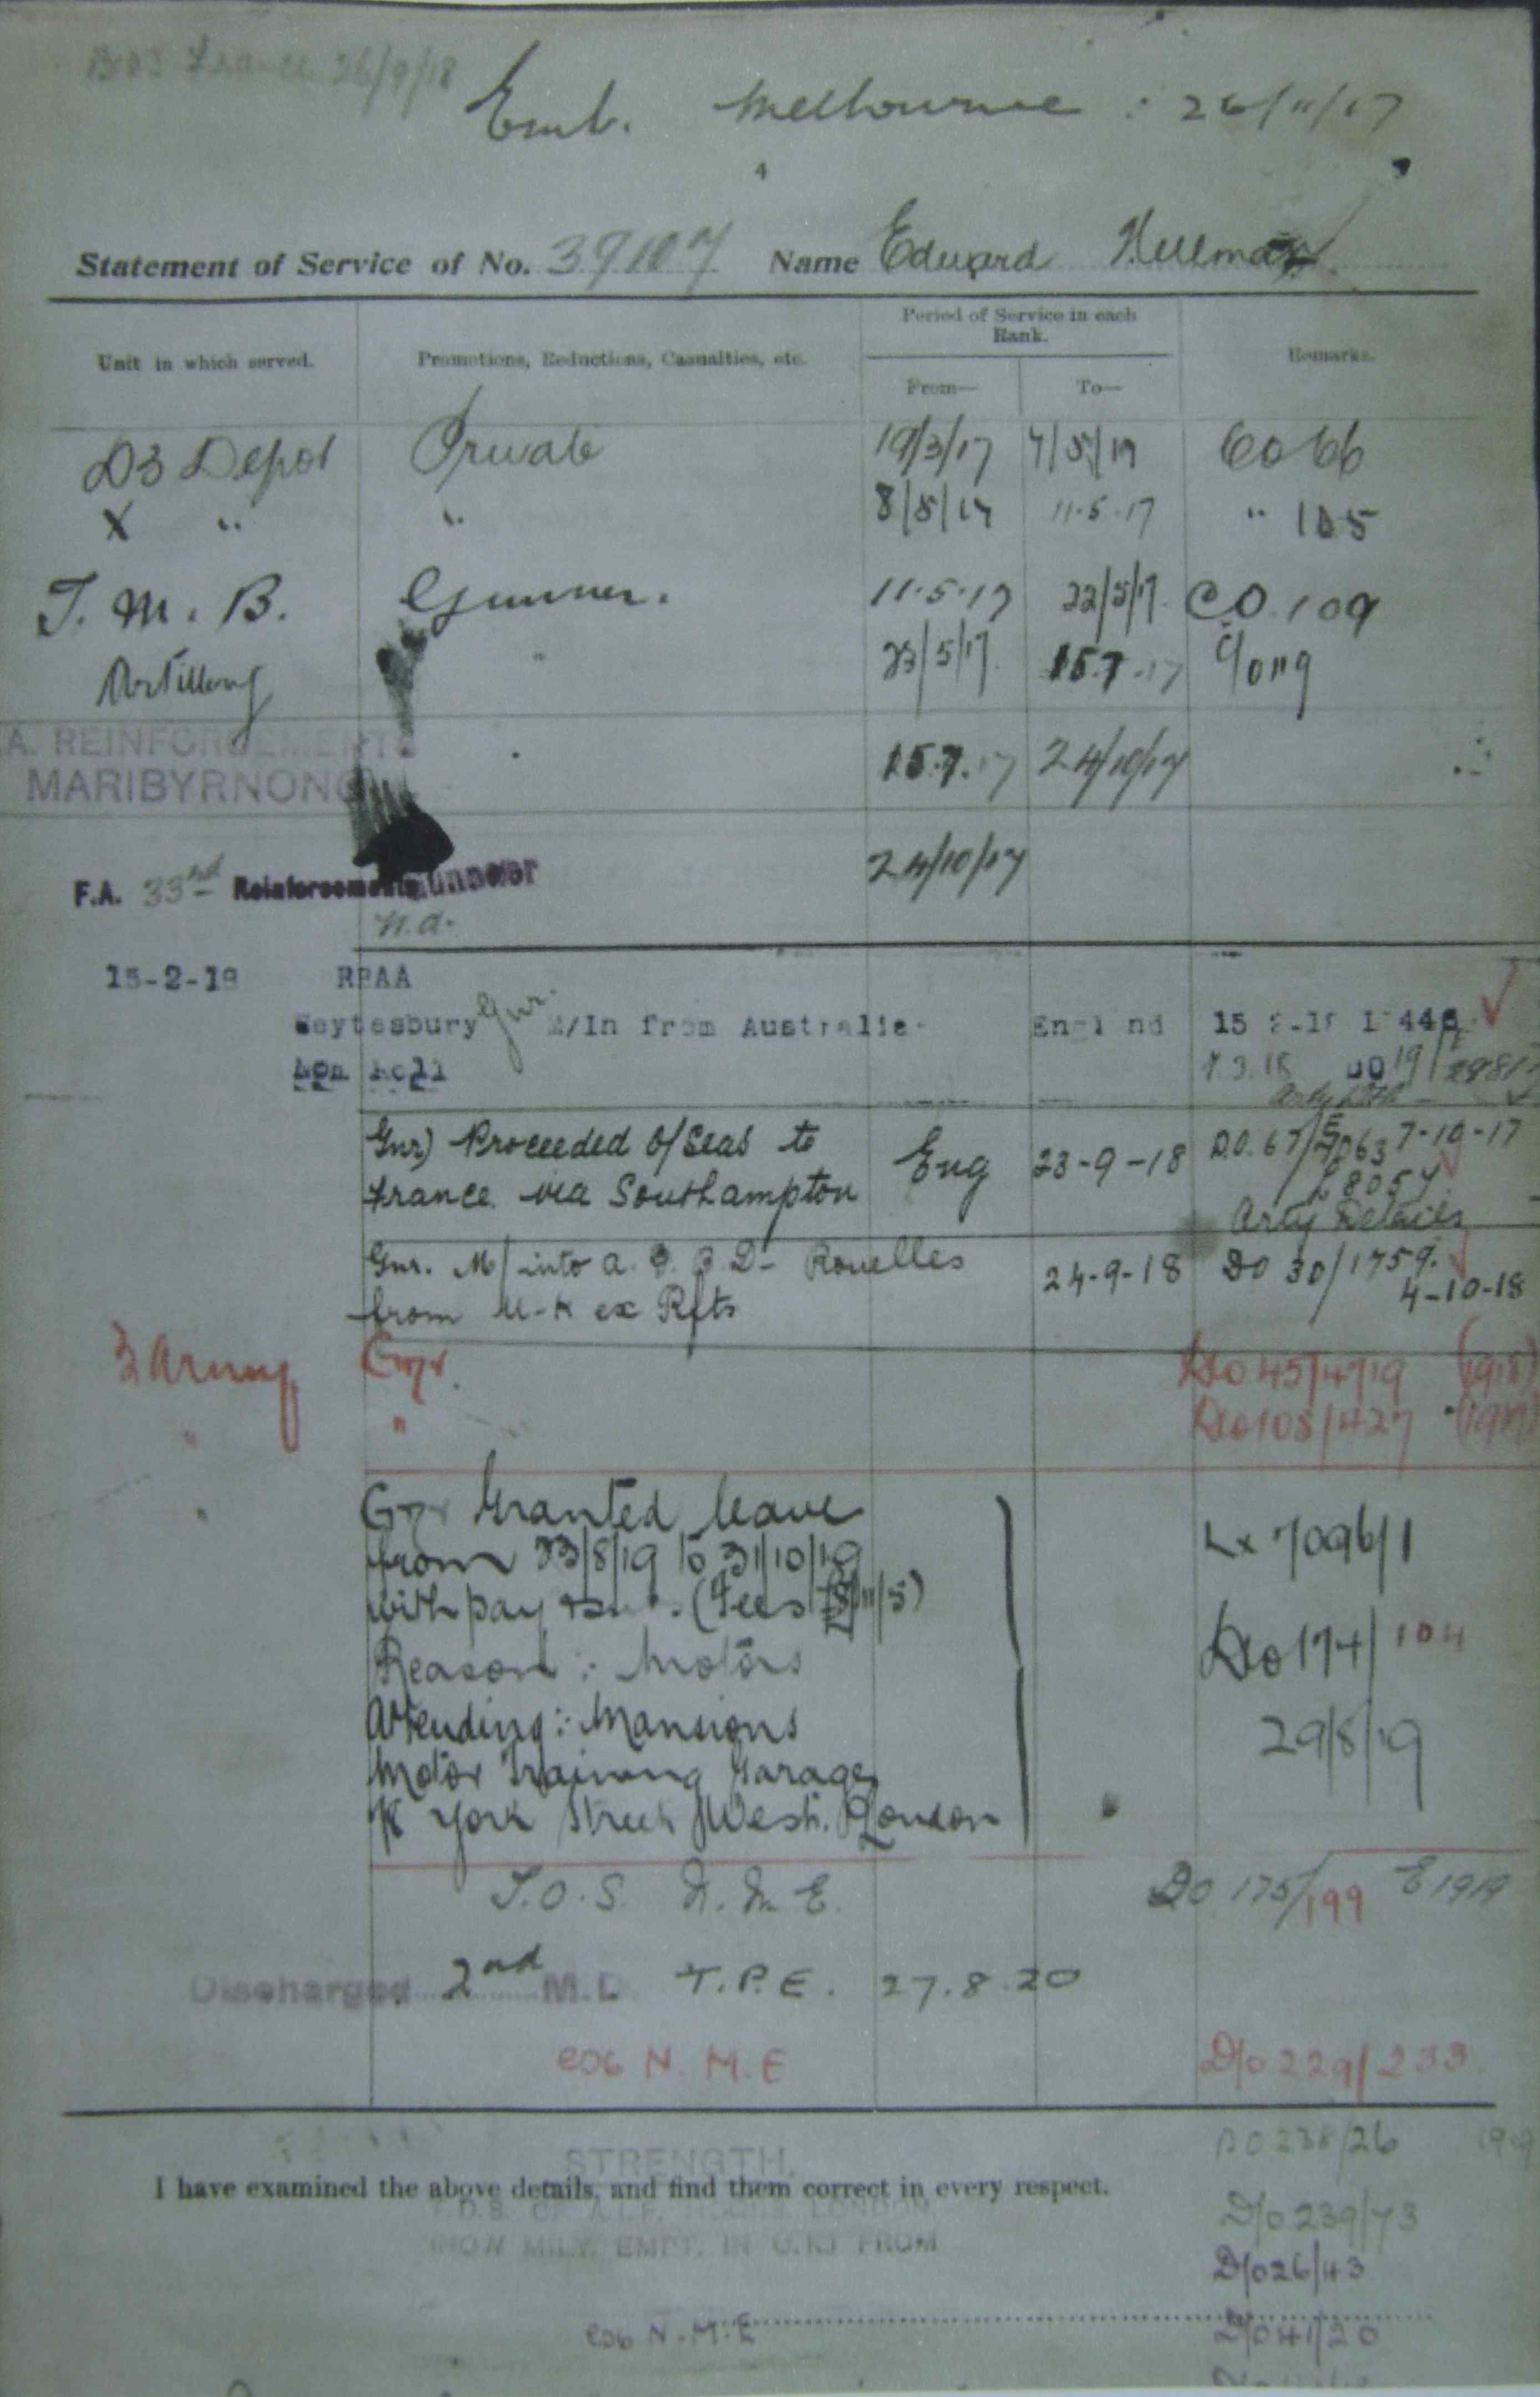 France 26/9/18
Emb. Melbourne : 26/11/17
4
Statement of Service of No. 39107 Name Edward
Unit in which served. Promotions, Reductions, Casualties, etc. Period of Service in each Rank. Remarks.
From— To—
D3 Depot Private 19/3/17 7/5/17 CO 66
X " " 8/5/17 11.5.17 " 105
T. M. B. Gunner. 11.5.17 22/5/17. CO. 109
Artillery " 23/5/17. 15.7.17 C/o 119
A. REINFORCEMENTS
MARIBYRNONG 15.7.17 24/10/17
F.A. 33rd Reinforcements Gunner 24/10/17
n.a.
15-2-18 RBAA
Heytesbury Gnr. M/In from Australia England 15 2-18 L 446
Gnr) Proceeded O/Seas to Eng 23-9-18 D.O. 67/ 7-10-17
France via Southampton
Arty Details
Gnr. M/ into a. G. B. D- Rouelles 24-9-18 DO 30/1759.
from U-K ex Rfts 4-10-18
3 Army Gnr. D/o 45/4719 (1918)
" " D/o 108/427
Gnr Granted leave
from 23/8/19 to 31/10/19 Lx 7096/1
with pay (Fees
Reason : Motors D/o 174/104
Attending : Mansions 29/8/19
Motor Training Garage
York Street West. London
T.O.S. N. M. E. DO. 175/199 E 1919
Discharged 2nd M.D. T.P.E. 27.8.20
N. M. E D/o 229/233
STRENGTH. DO 238/26
I have examined the above details, and find them correct in every respect.
LONDON D/o 239/73
(NON MILY. EMPT. IN U.K.) FROM
D/o 26/43
N.M.E D/o 41/20